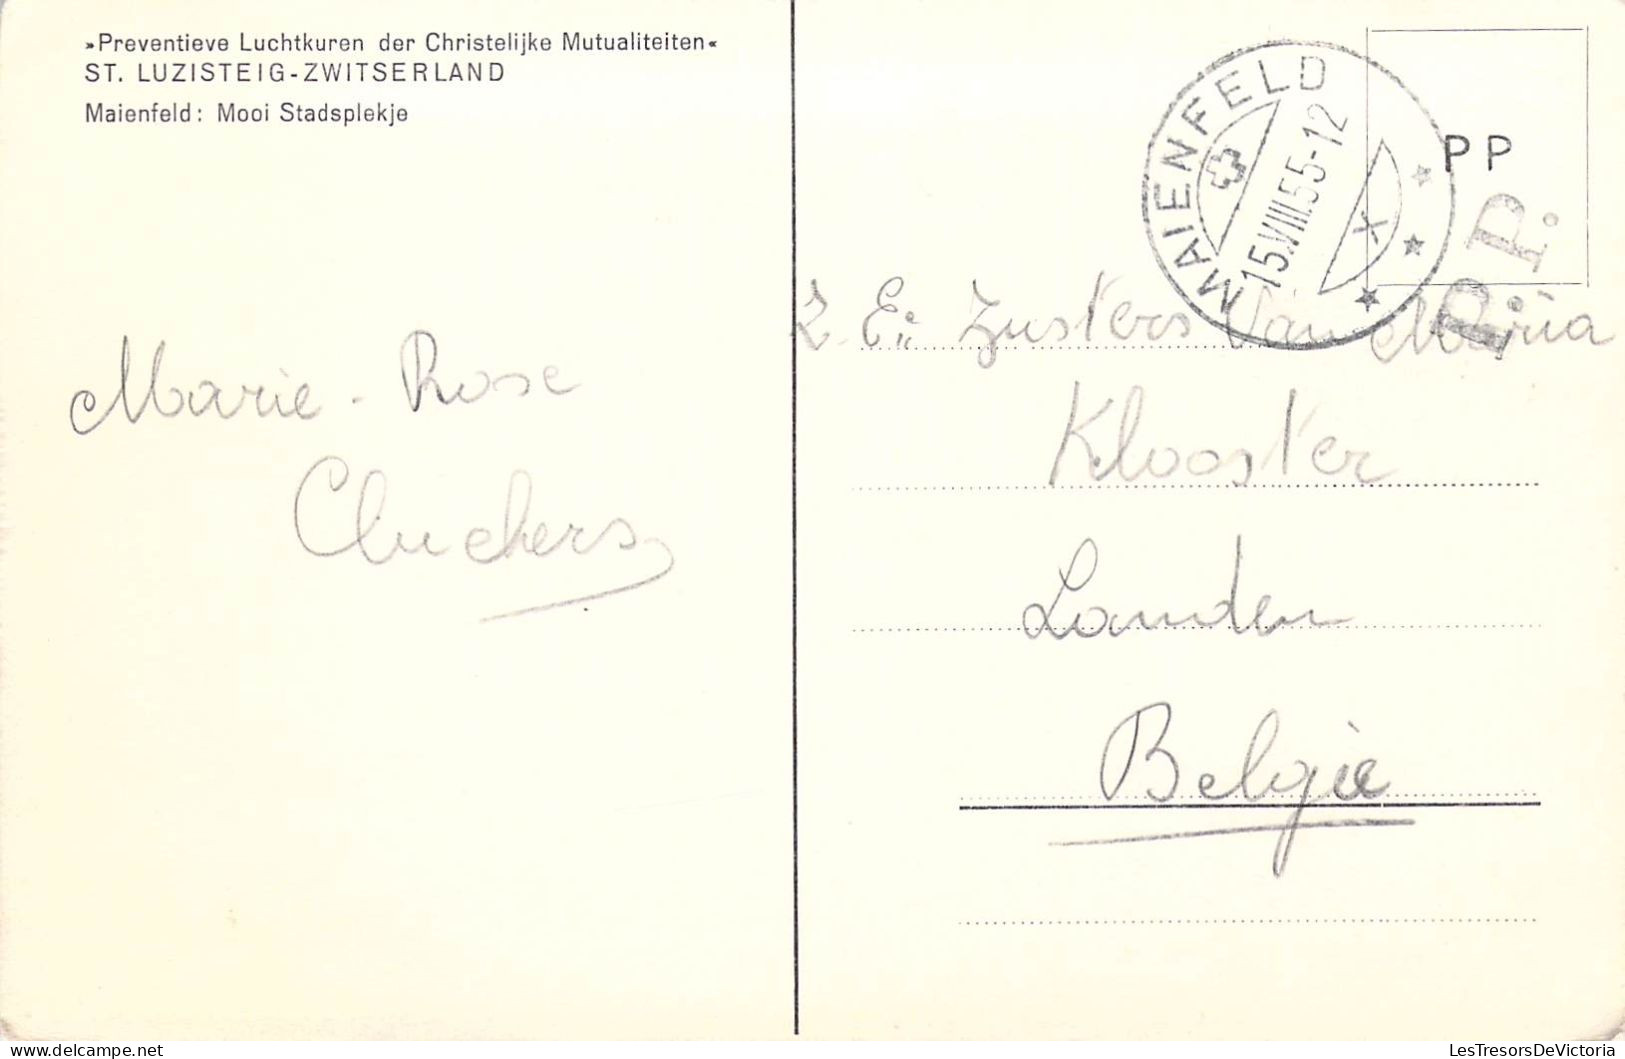 »Preventieve Luchtkuren der Christelijke Mutualiteiten«
ST. LUZISTEIG-ZWITSERLAND
Maienfeld: Mooi Stadsplekje
MAIENFELD
15.VIII.55-12
X
PP
P.P.
Z. E. Zusters Van Maria
Klooster
Landen
België
Marie-Rose
Cluckers
LesTresorsDeVictoria